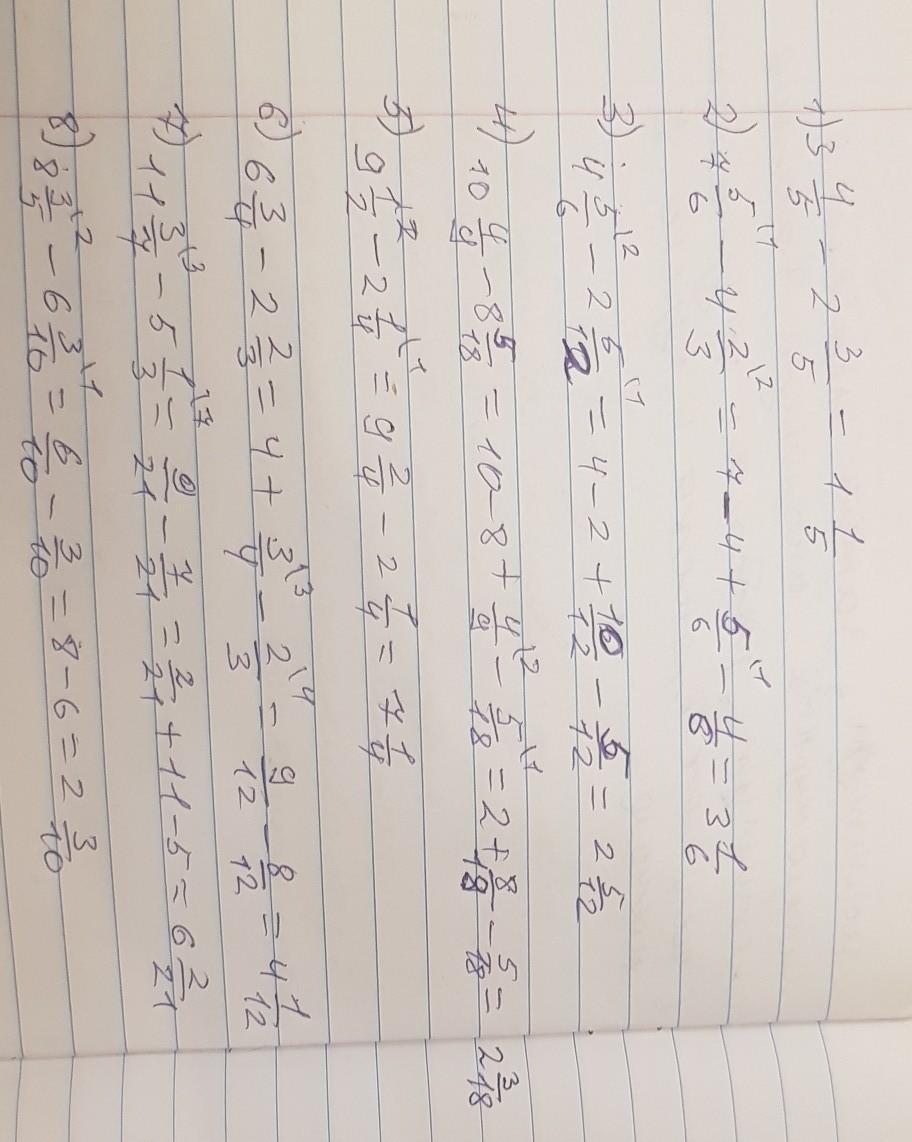 1) 3 4/5 - 2 3/5 = 1 1/5
2) 7 5/6 \1 - 4 2/3 \2 = 7 - 4 + 5/6 \1 - 4/6 = 3 1/6
3) 4 5/6 \2 - 2 5/12 \1 = 4 - 2 + 10/12 - 5/12 = 2 5/12
4) 10 4/9 - 8 5/18 = 10 - 8 + 4/9 \2 - 5/18 \1 = 2 + 8/18 - 5/18 = 2 3/18
5) 9 1/2 \2 - 2 1/4 \1 = 9 2/4 - 2 1/4 = 7 1/4
6) 6 3/4 - 2 2/3 = 4 + 3/4 \3 - 2/3 \4 - 9/12 - 8/12 = 4 1/12
7) 11 3/7 \3 - 5 1/3 \7 = 9/21 - 7/21 = 2/21 + 11 - 5 = 6 2/21
8) 8 3/5 \2 - 6 3/10 \1 = 6/10 - 3/10 = 8 - 6 = 2 3/10